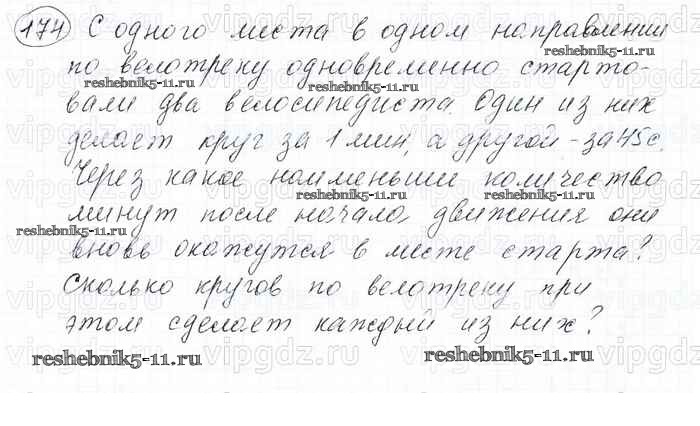 174 С одного места в одном направлении
по велотреку одновременно старто-
вали два велосипедиста. Один из них
делает круг за 1 мин, а другой - за 45 с.
Через какое наименьшее количество
минут после начала движения они
вновь окажутся в месте старта?
Сколько кругов по велотреку при
этом сделает каждый из них?
reshebnik5-11.ru
reshebnik5-11.ru
reshebnik5-11.ru
reshebnik5-11.ru
reshebnik5-11.ru
reshebnik5-11.ru
reshebnik5-11.ru